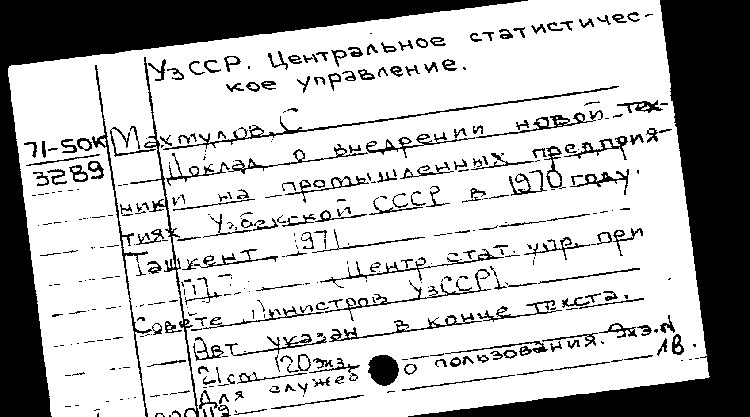 УзССР. Центральное статистичес-
кое управление.
71-50К
3289
Махмудов, С
Доклад о внедрении новой тех-
ники на промышленных предприя-
тиях Узбекской СССР в 1970 году.
Ташкент, 1971.
(Центр стат. упр. при
Совете Министров УзССР).
Авт указан в конце текста.
21cm 120 экз.
Для служеб о пользования. Экз. N
1В.